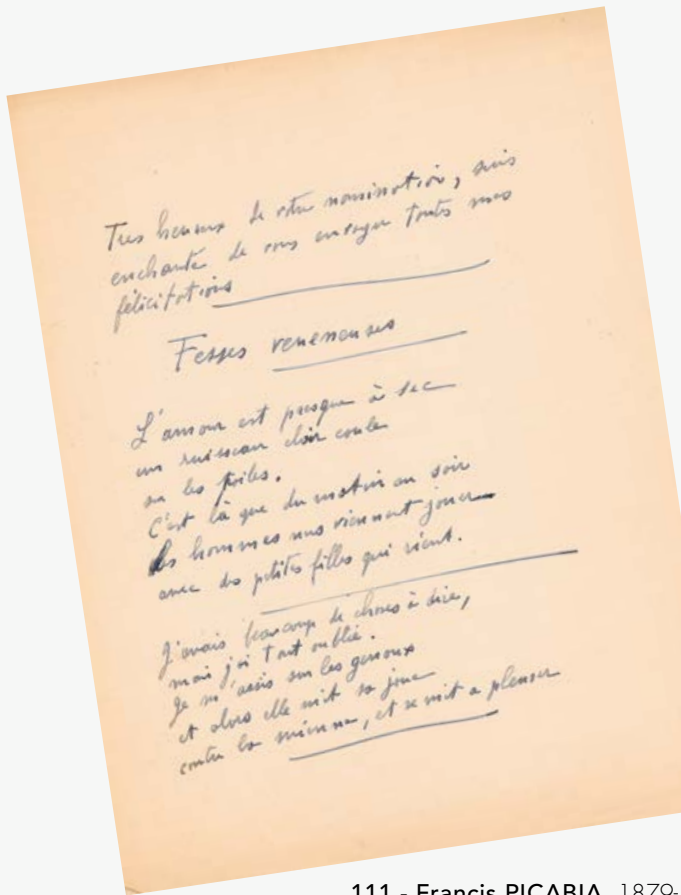 Tres heureux de votre nomination, suis
enchanté de vous envoyer toutes mes
félicitations
Fesses veneneuses
L'amour est presque à sec
un ruisseau clair coule
sur les poiles.
C'est là que du matin au soir
des hommes nus viennent jouer
avec des petites filles qui rient.
J'avais beaucoup de choses à dire,
mais j'ai tout oublié.
Je m'assis sur les genoux
et alors elle mit sa joue
contre la mienne, et se mit a pleurer
111 - Francis PICABIA 1879-